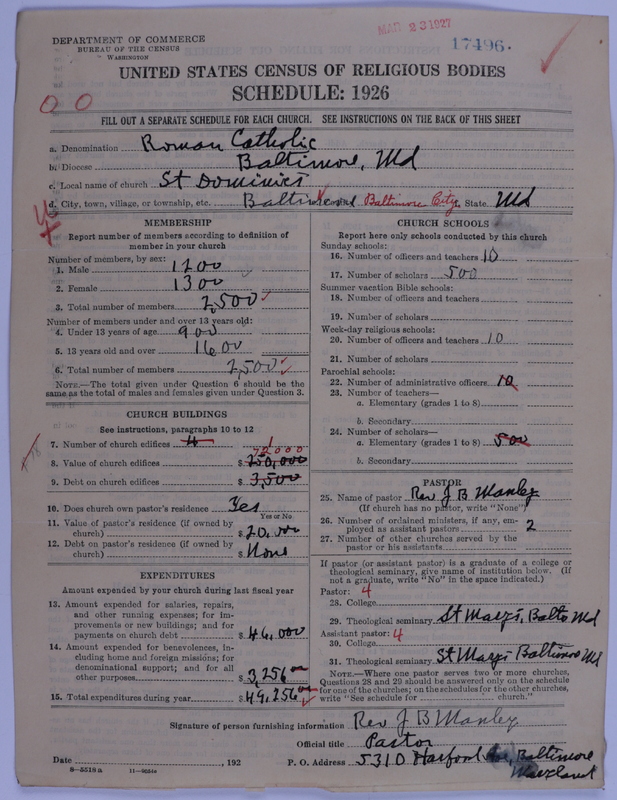 MAR 23 1927
17496.
DEPARTMENT OF COMMERCE
BUREAU OF THE CENSUS
WASHINGTON
UNITED STATES CENSUS OF RELIGIOUS BODIES
SCHEDULE: 1926
0 0
FILL OUT A SEPARATE SCHEDULE FOR EACH CHURCH. SEE INSTRUCTIONS ON THE BACK OF THIS SHEET
a. Denomination Roman Catholic
b. Diocese Baltimore, Md
c. Local name of church St Dominic's
d. City, town, village, or township, etc. Baltimore Baltimore City State Md
MEMBERSHIP
Report number of members according to definition of
member in your church
Number of members, by sex:
1. Male 1200
2. Female 1300
3. Total number of members 2,500
Number of members under and over 13 years old:
4. Under 13 years of age 900
5. 13 years old and over 1600
6. Total number of members 2,500
NOTE.—The total given under Question 6 should be the
same as the total of males and females given under Question 3.
CHURCH BUILDINGS
See instructions, paragraphs 10 to 12
7. Number of church edifices 4 1
72000
8. Value of church edifices $ 250,000
9. Debt on church edifices $ 3,500
10. Does church own pastor's residence Yes
Yes or No
11. Value of pastor's residence (if owned by
church) $ 20,000
12. Debt on pastor's residence (if owned by
church) $ None
EXPENDITURES
Amount expended by your church during last fiscal year
13. Amount expended for salaries, repairs,
and other running expenses; for im-
provements or new buildings; and for
payments on church debt $ 46,000
14. Amount expended for benevolences, in-
cluding home and foreign missions; for
denominational support; and for all
other purposes $ 3,256 00
15. Total expenditures during year $ 49,256 00
CHURCH SCHOOLS
Report here only schools conducted by this church
Sunday schools:
16. Number of officers and teachers 10
17. Number of scholars 500
Summer vacation Bible schools:
18. Number of officers and teachers
19. Number of scholars
Week-day religious schools:
20. Number of officers and teachers 10
21. Number of scholars
Parochial schools:
22. Number of administrative officers 10
23. Number of teachers—
a. Elementary (grades 1 to 8)
b. Secondary
24. Number of scholars—
a. Elementary (grades 1 to 8) 500
b. Secondary
PASTOR
25. Name of pastor Rev J B Manley
(If church has no pastor, write "None")
26. Number of ordained ministers, if any, em-
ployed as assistant pastors 2
27. Number of other churches served by the
pastor or his assistants
If pastor (or assistant pastor) is a graduate of a college or
theological seminary, give name of institution below. (If
not a graduate, write "No" in the space indicated.)
Pastor: 4
28. College
29. Theological seminary St Mary's, Balto Md
Assistant pastor: 4
30. College
31. Theological seminary St Mary's Baltimore Md
NOTE.—Where one pastor serves two or more churches,
Questions 28 and 29 should be answered only on the schedule
for one of the churches; on the schedules for the other churches,
write "See schedule for church."
Signature of person furnishing information Rev. J B Manley
Official title Pastor
Date , 192 P. O. Address 5310 Harford Ave, Baltimore
Maryland
8—5518a 11—9034a